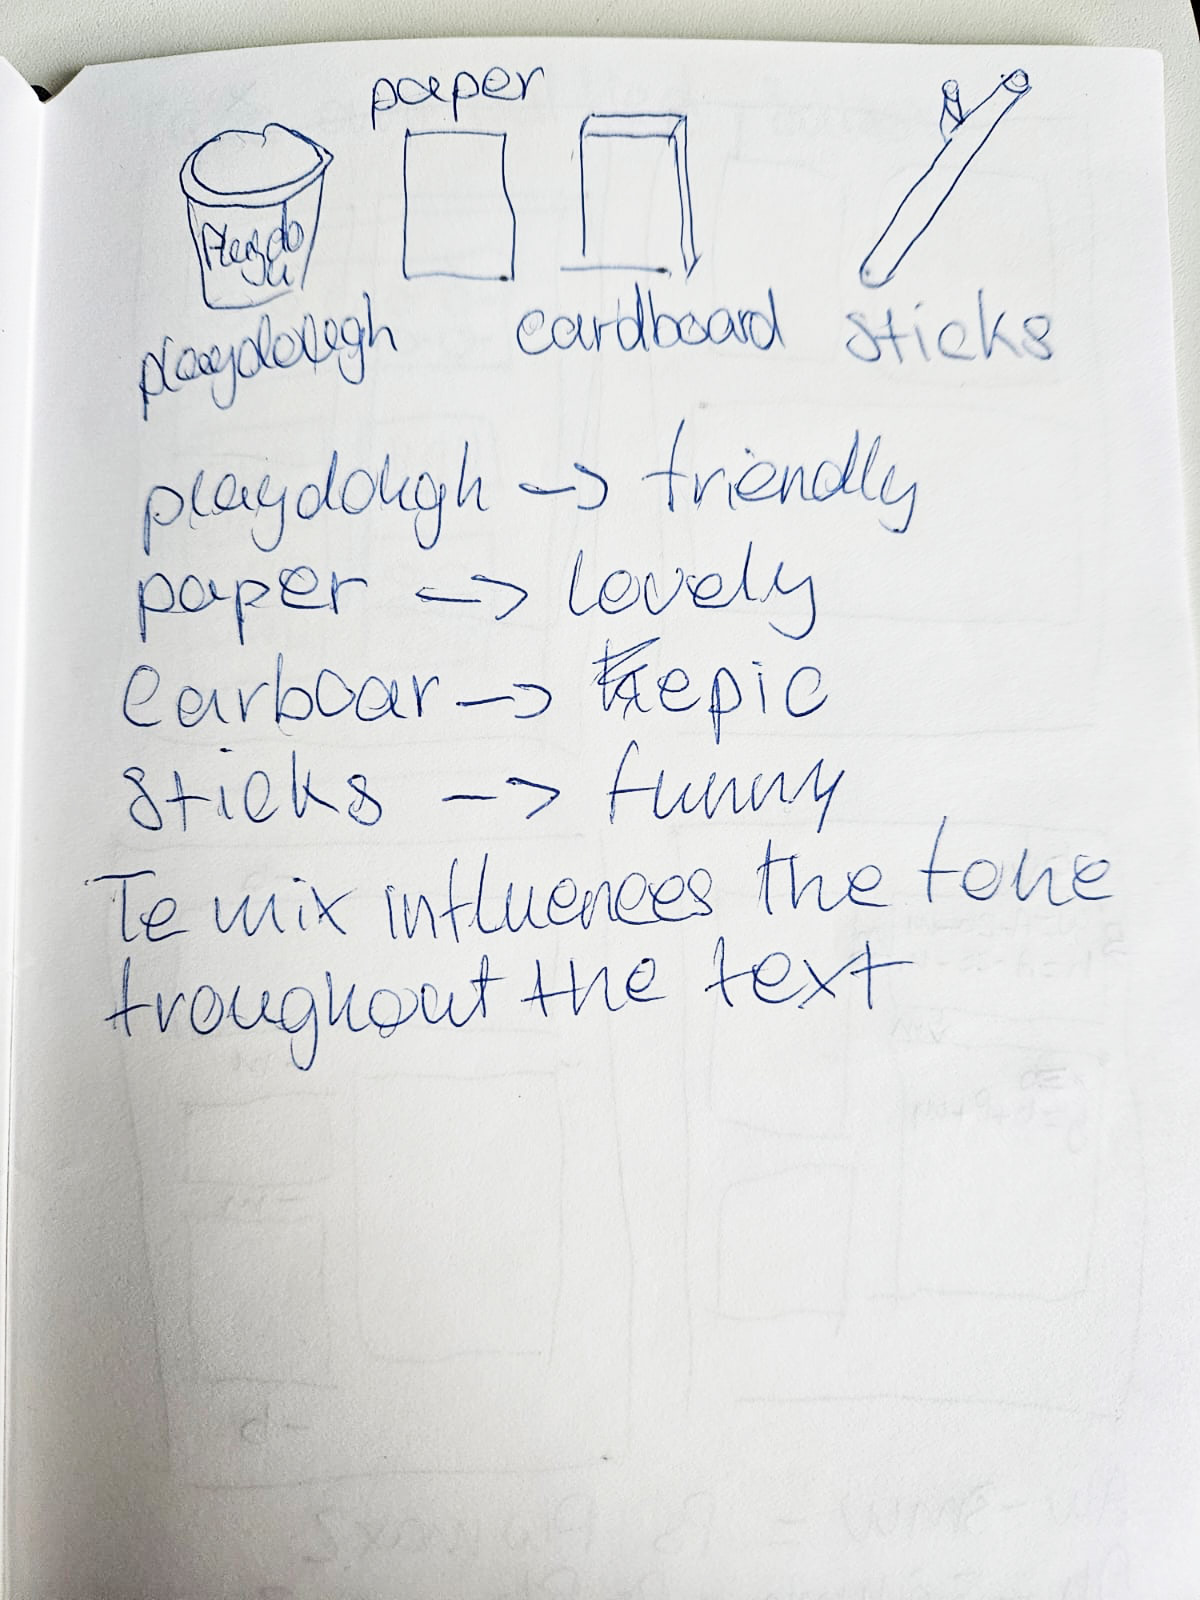 paper
Playdo
u
playdough
cardboard
sticks
playdough -> friendly
paper -> lovely
carboar -> epic
sticks -> funny
Te mix influences the tone
troughout the text